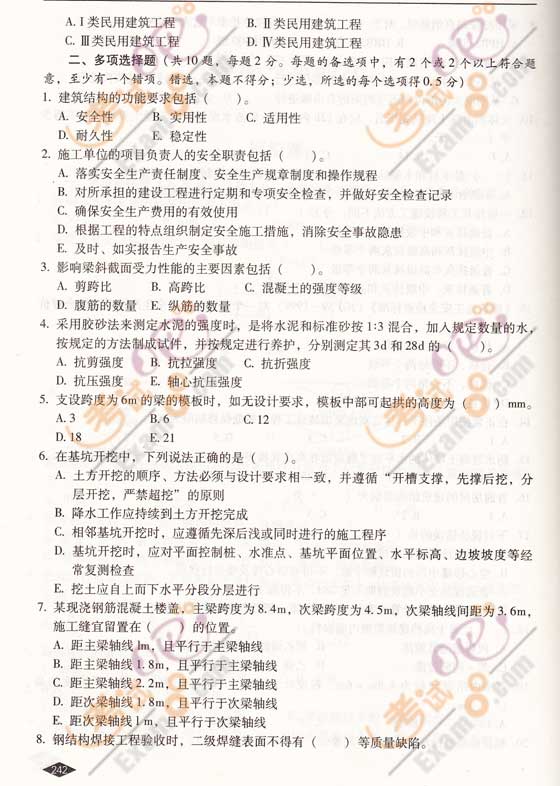 A. Ⅰ类民用建筑工程 B. Ⅱ类民用建筑工程
C. Ⅲ类民用建筑工程 D. Ⅳ类民用建筑工程
二、多项选择题（共10题，每题2分。每题的备选项中，有2个或2个以上符合题
意，至少有一个错项。错选，本题不得分；少选，所选的每个选项得0.5分）
1. 建筑结构的功能要求包括（ ）。
A. 安全性 B. 实用性 C. 适用性
D. 耐久性 E. 稳定性
2. 施工单位的项目负责人的安全职责包括（ ）。
A. 落实安全生产责任制度、安全生产规章制度和操作规程
B. 对所承担的建设工程进行定期和专项安全检查，并做好安全检查记录
C. 确保安全生产费用的有效使用
D. 根据工程的特点组织制定安全施工措施，消除安全事故隐患
E. 及时、如实报告生产安全事故
3. 影响梁斜截面受力性能的主要因素包括（ ）。
A. 剪跨比 B. 高跨比 C. 混凝土的强度等级
D. 腹筋的数量 E. 纵筋的数量
4. 采用胶砂法来测定水泥的强度时，是将水泥和标准砂按1∶3混合，加入规定数量的水，
按规定的方法制成试件，并按规定进行养护，分别测定其3d和28d的（ ）。
A. 抗剪强度 B. 抗拉强度 C. 抗折强度
D. 抗压强度 E. 轴心抗压强度
5. 支设跨度为6m的梁的模板时，如无设计要求，模板中部可起拱的高度为（ ）mm。
A. 3 B. 6 C. 12
D. 18 E. 21
6. 在基坑开挖中，下列说法正确的是（ ）。
A. 土方开挖的顺序、方法必须与设计要求相一致，并遵循“开槽支撑，先撑后挖，分
层开挖，严禁超挖”的原则
B. 降水工作应持续到土方开挖完成
C. 相邻基坑开挖时，应遵循先深后浅或同时进行的施工程序
D. 基坑开挖时，应对平面控制桩、水准点、基坑平面位置、水平标高、边坡坡度等经
常复测检查
E. 挖土应自上而下水平分段分层进行
7. 某现浇钢筋混凝土楼盖，主梁跨度为8.4m，次梁跨度为4.5m，次梁轴线间距为3.6m，
施工缝宜留置在（ ）的位置。
A. 距主梁轴线1m，且平行于主梁轴线
B. 距主梁轴线1.8m，且平行于主梁轴线
C. 距主梁轴线2.2m，且平行于主梁轴线
D. 距次梁轴线1.8m，且平行于次梁轴线
E. 距次梁轴线1m，且平行于次梁轴线
8. 钢结构焊接工程验收时，二级焊缝表面不得有（ ）等质量缺陷。
242
考试吧
Exam8.com